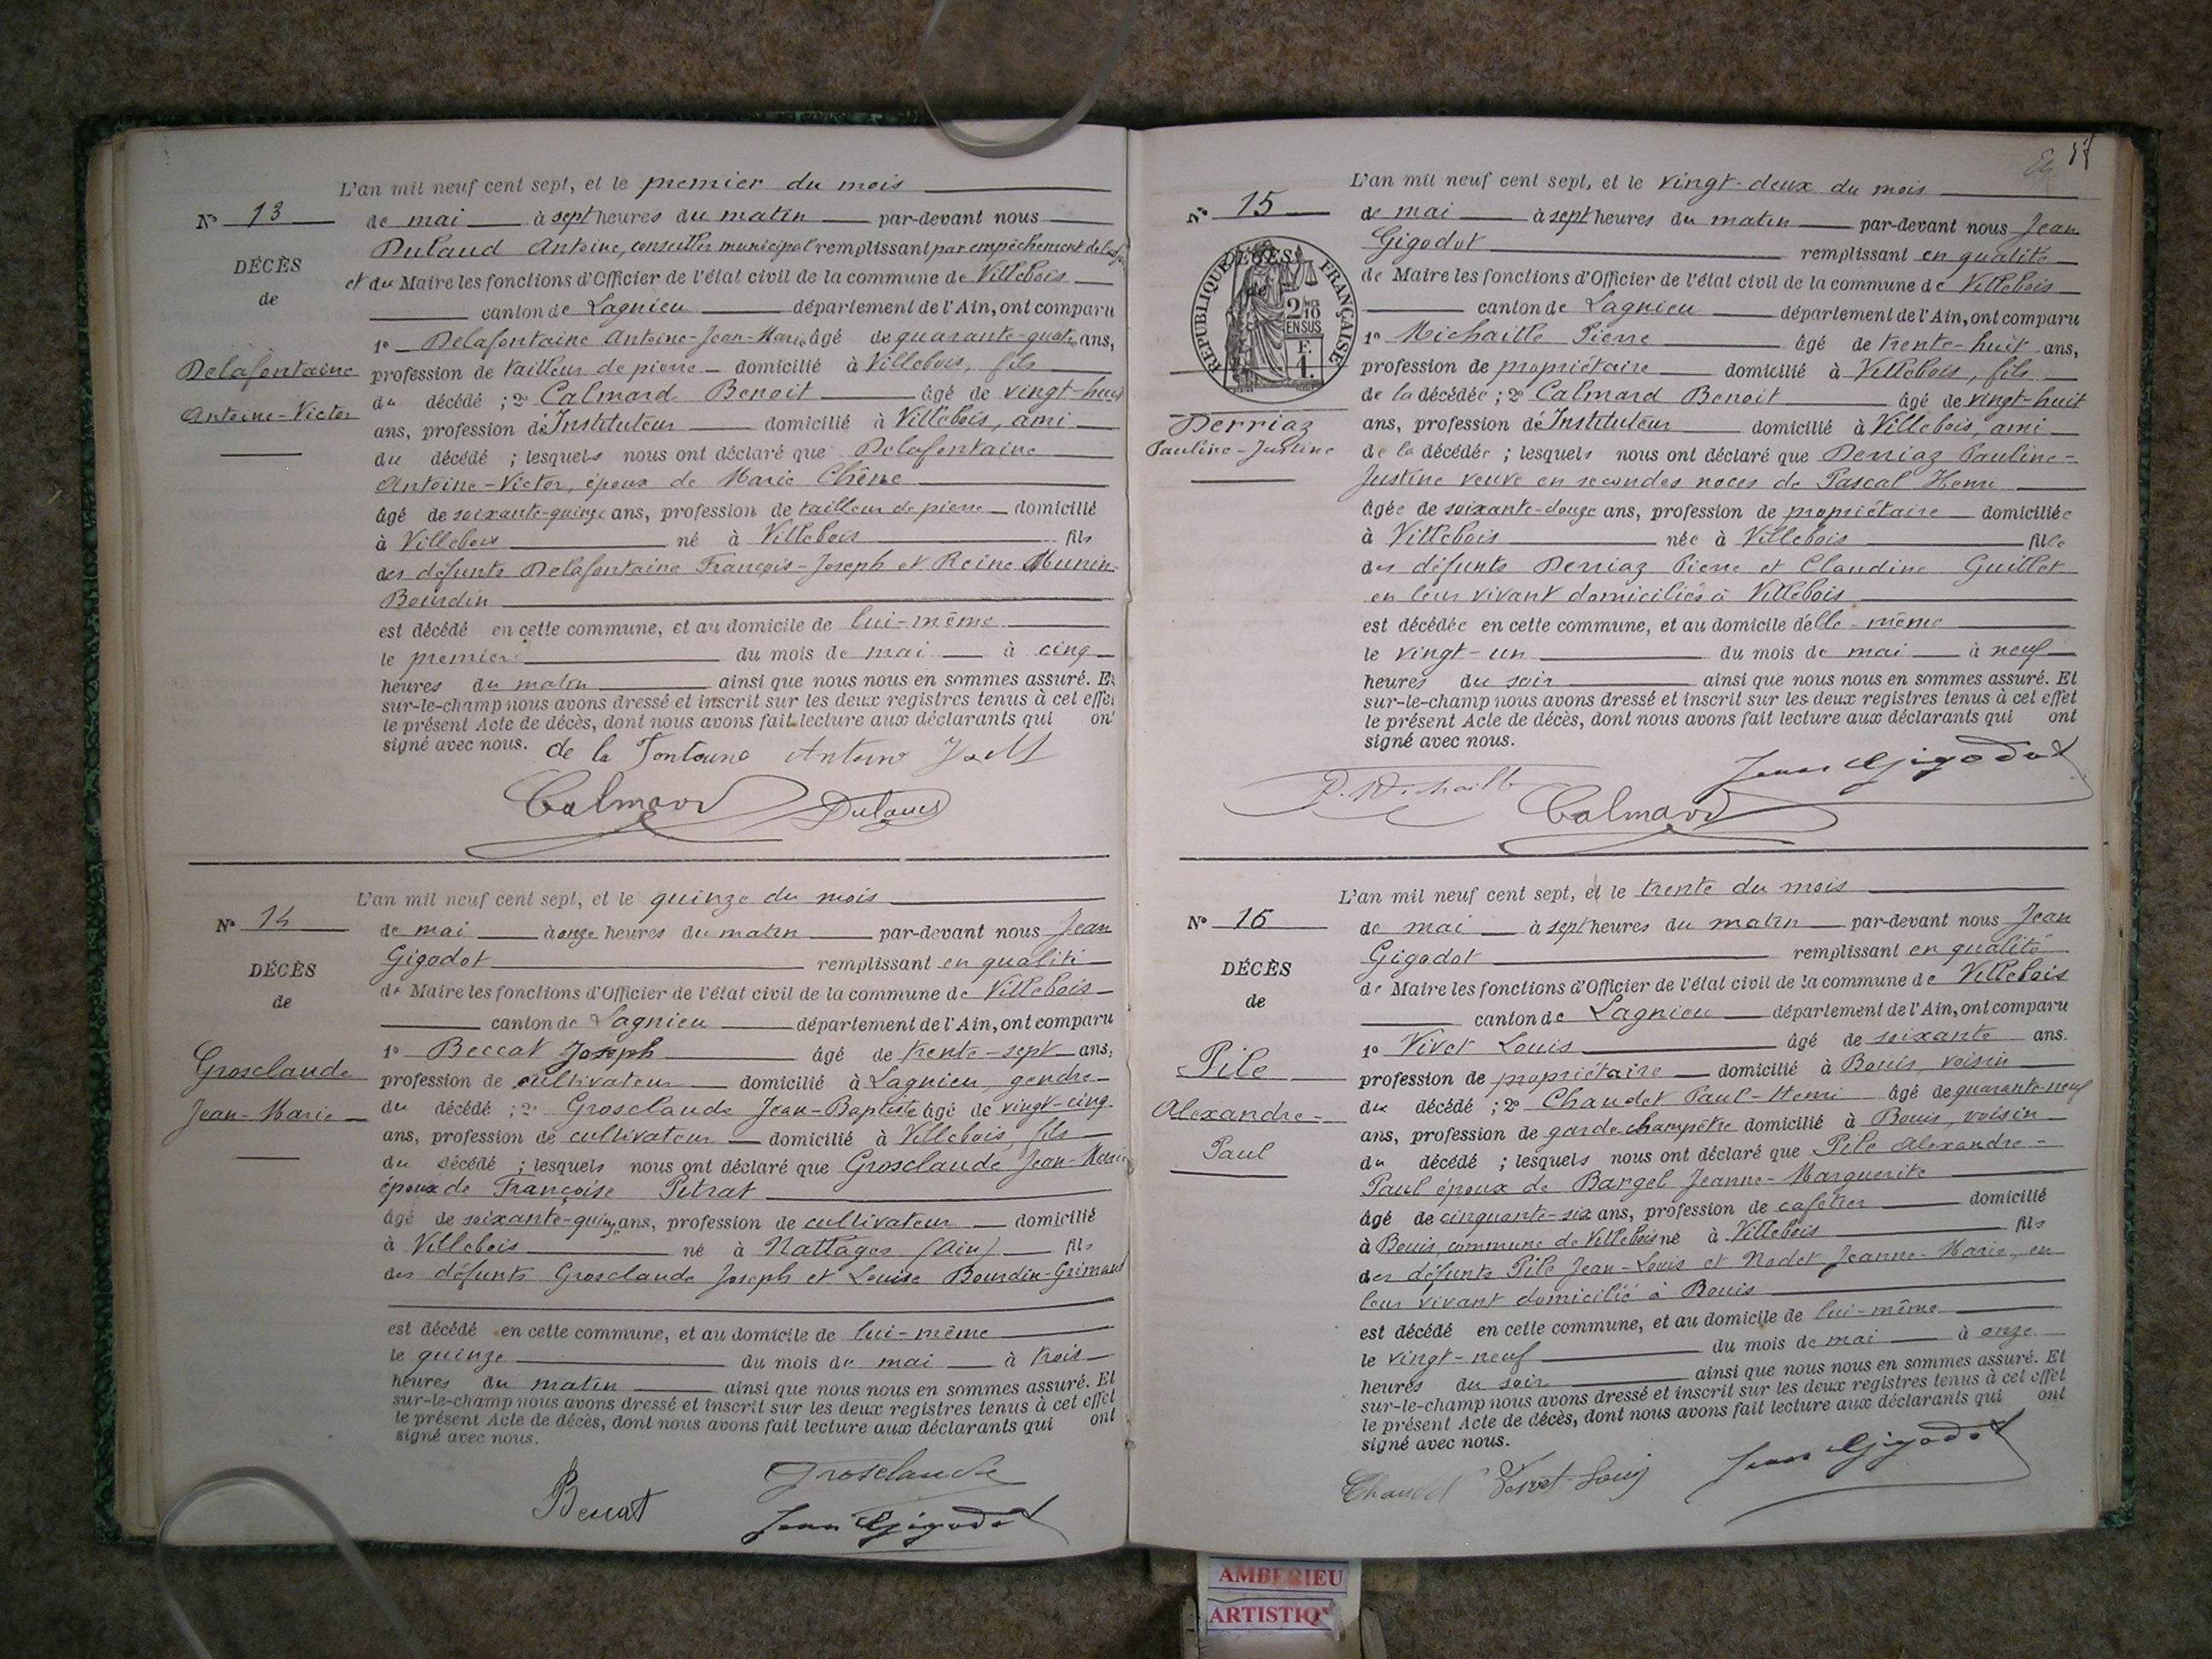 L'an mil neuf cent sept, et le premier du mois
N° 13
de mai à sept heures du matin par-devant nous
Dulaud Antoine, conseiller municipal remplissant par empêchement de
DÉCÈS
et du Maire les fonctions d'Officier de l'état civil de la commune de Villebois
de
canton de Lagnieu département de l'Ain, ont comparu
1° Delafontaine Antoine-Jean-Marie âgé de quarante-quatre ans,
Delafontaine
profession de tailleur de pierre domicilié à Villebois, fils
Antoine-Victor
du décédé ; 2° Calmard Benoit âgé de vingt-huit
ans, profession d'Instituteur domicilié à Villebois, ami
du décédé ; lesquels nous ont déclaré que Delafontaine
Antoine-Victor, époux de Marie Chêne
âgé de soixante-quinze ans, profession de tailleur de pierre domicilié
à Villebois né à Villebois fils
des défunts Delafontaine François-Joseph et Reine Munin-
Bourdin
est décédé en cette commune, et au domicile de lui-même
le premier du mois de mai à cinq
heures du matin ainsi que nous nous en sommes assuré. Et
sur-le-champ nous avons dressé et inscrit sur les deux registres tenus à cet effet
le présent Acte de décès, dont nous avons fait lecture aux déclarants qui ont
signé avec nous.
de la Fontaine Antoine J M
Calmard Dulaud
L'an mil neuf cent sept, et le quinze du mois
N° 14
de mai à onze heures du matin par-devant nous Jean
Gigodot remplissant en qualité
DÉCÈS
de Maire les fonctions d'Officier de l'état civil de la commune de Villebois
de
canton de Lagnieu département de l'Ain, ont comparu
1° Beccat Joseph âgé de trente-sept ans,
Grosclaude
profession de cultivateur domicilié à Lagnieu, gendre
Jean-Marie
du décédé ; 2° Grosclaude Jean-Baptiste âgé de vingt-cinq
ans, profession de cultivateur domicilié à Villebois, fils
du décédé ; lesquels nous ont déclaré que Grosclaude Jean-Marie
époux de Françoise Petrat
âgé de soixante-quinze ans, profession de cultivateur domicilié
à Villebois né à Nattages (Ain) fils
des défunts Grosclaude Joseph et Louise Bourdin-Grimaud
est décédé en cette commune, et au domicile de lui-même
le quinze du mois de mai à trois
heures du matin ainsi que nous nous en sommes assuré. Et
sur-le-champ nous avons dressé et inscrit sur les deux registres tenus à cet effet
le présent Acte de décès, dont nous avons fait lecture aux déclarants qui ont
signé avec nous.
Grosclaude
Beccat
Jean Gigodot
L'an mil neuf cent sept, et le vingt-deux du mois
N° 15
de mai à sept heures du matin par-devant nous Jean
Gigodot remplissant en qualité
DÉCÈS
RÉPUBLIQUE FRANÇAISE
2/10 EN SUS
F. 1.
de Maire les fonctions d'Officier de l'état civil de la commune de Villebois
canton de Lagnieu département de l'Ain, ont comparu
1° Michaille Pierre âgé de trente-huit ans,
profession de propriétaire domicilié à Villebois, fils
de la décédée ; 2° Calmard Benoit âgé de vingt-huit
Derriaz
ans, profession d'Instituteur domicilié à Villebois, ami
Pauline-Justine
de la décédée ; lesquels nous ont déclaré que Derriaz Pauline-
Justine veuve en secondes noces de Pascal Henri
âgée de soixante-douze ans, profession de propriétaire domiciliée
à Villebois née à Villebois fille
des défunts Derriaz Pierre et Claudine Guillet
en leur vivant domiciliés à Villebois
est décédée en cette commune, et au domicile d'elle-même
le vingt-un du mois de mai à neuf
heures du soir ainsi que nous nous en sommes assuré. Et
sur-le-champ nous avons dressé et inscrit sur les deux registres tenus à cet effet
le présent Acte de décès, dont nous avons fait lecture aux déclarants qui ont
signé avec nous.
Jean Gigodot
P. Michaille Calmard
L'an mil neuf cent sept, et le trente du mois
N° 16
de mai à sept heures du matin par-devant nous Jean
Gigodot remplissant en qualité
DÉCÈS
de Maire les fonctions d'Officier de l'état civil de la commune de Villebois
de
canton de Lagnieu département de l'Ain, ont comparu
1° Vivet Louis âgé de soixante ans.
Pile
profession de propriétaire domicilié à Bouis, voisin
Alexandre-
du décédé ; 2° Chaudet Paul-Henri âgé de quarante-neuf
ans, profession de garde-champêtre domicilié à Bouis, voisin
Paul
du décédé ; lesquels nous ont déclaré que Pile Alexandre-
Paul époux de Bargel Jeanne-Marguerite
âgé de cinquante-six ans, profession de cafetier domicilié
à Bouis, commune de Villebois né à Villebois fils
des défunts Pile Jean-Louis et Nodet Jeanne-Marie, en
leur vivant domicilié à Bouis
est décédé en cette commune, et au domicile de lui-même
le vingt-neuf du mois de mai à onze
heures du soir ainsi que nous nous en sommes assuré. Et
sur-le-champ nous avons dressé et inscrit sur les deux registres tenus à cet effet
le présent Acte de décès, dont nous avons fait lecture aux déclarants qui ont
signé avec nous.
Chaudet Vivet Louis Jean Gigodot
AMBERIEU
ARTISTIQ